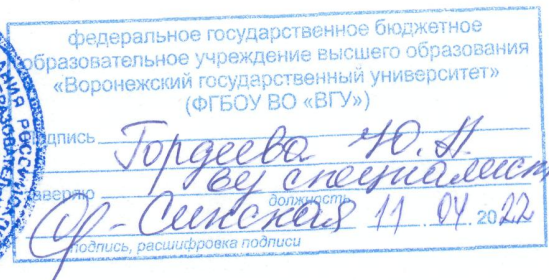 федеральное государственное бюджетное
образовательное учреждение высшего образования
«Воронежский государственный университет»
(ФГБОУ ВО «ВГУ»)
подпись Гордеева Ю.Н.
вед специалист
заверяю должность
Синская 11 04 2022
подпись, расшифровка подписи